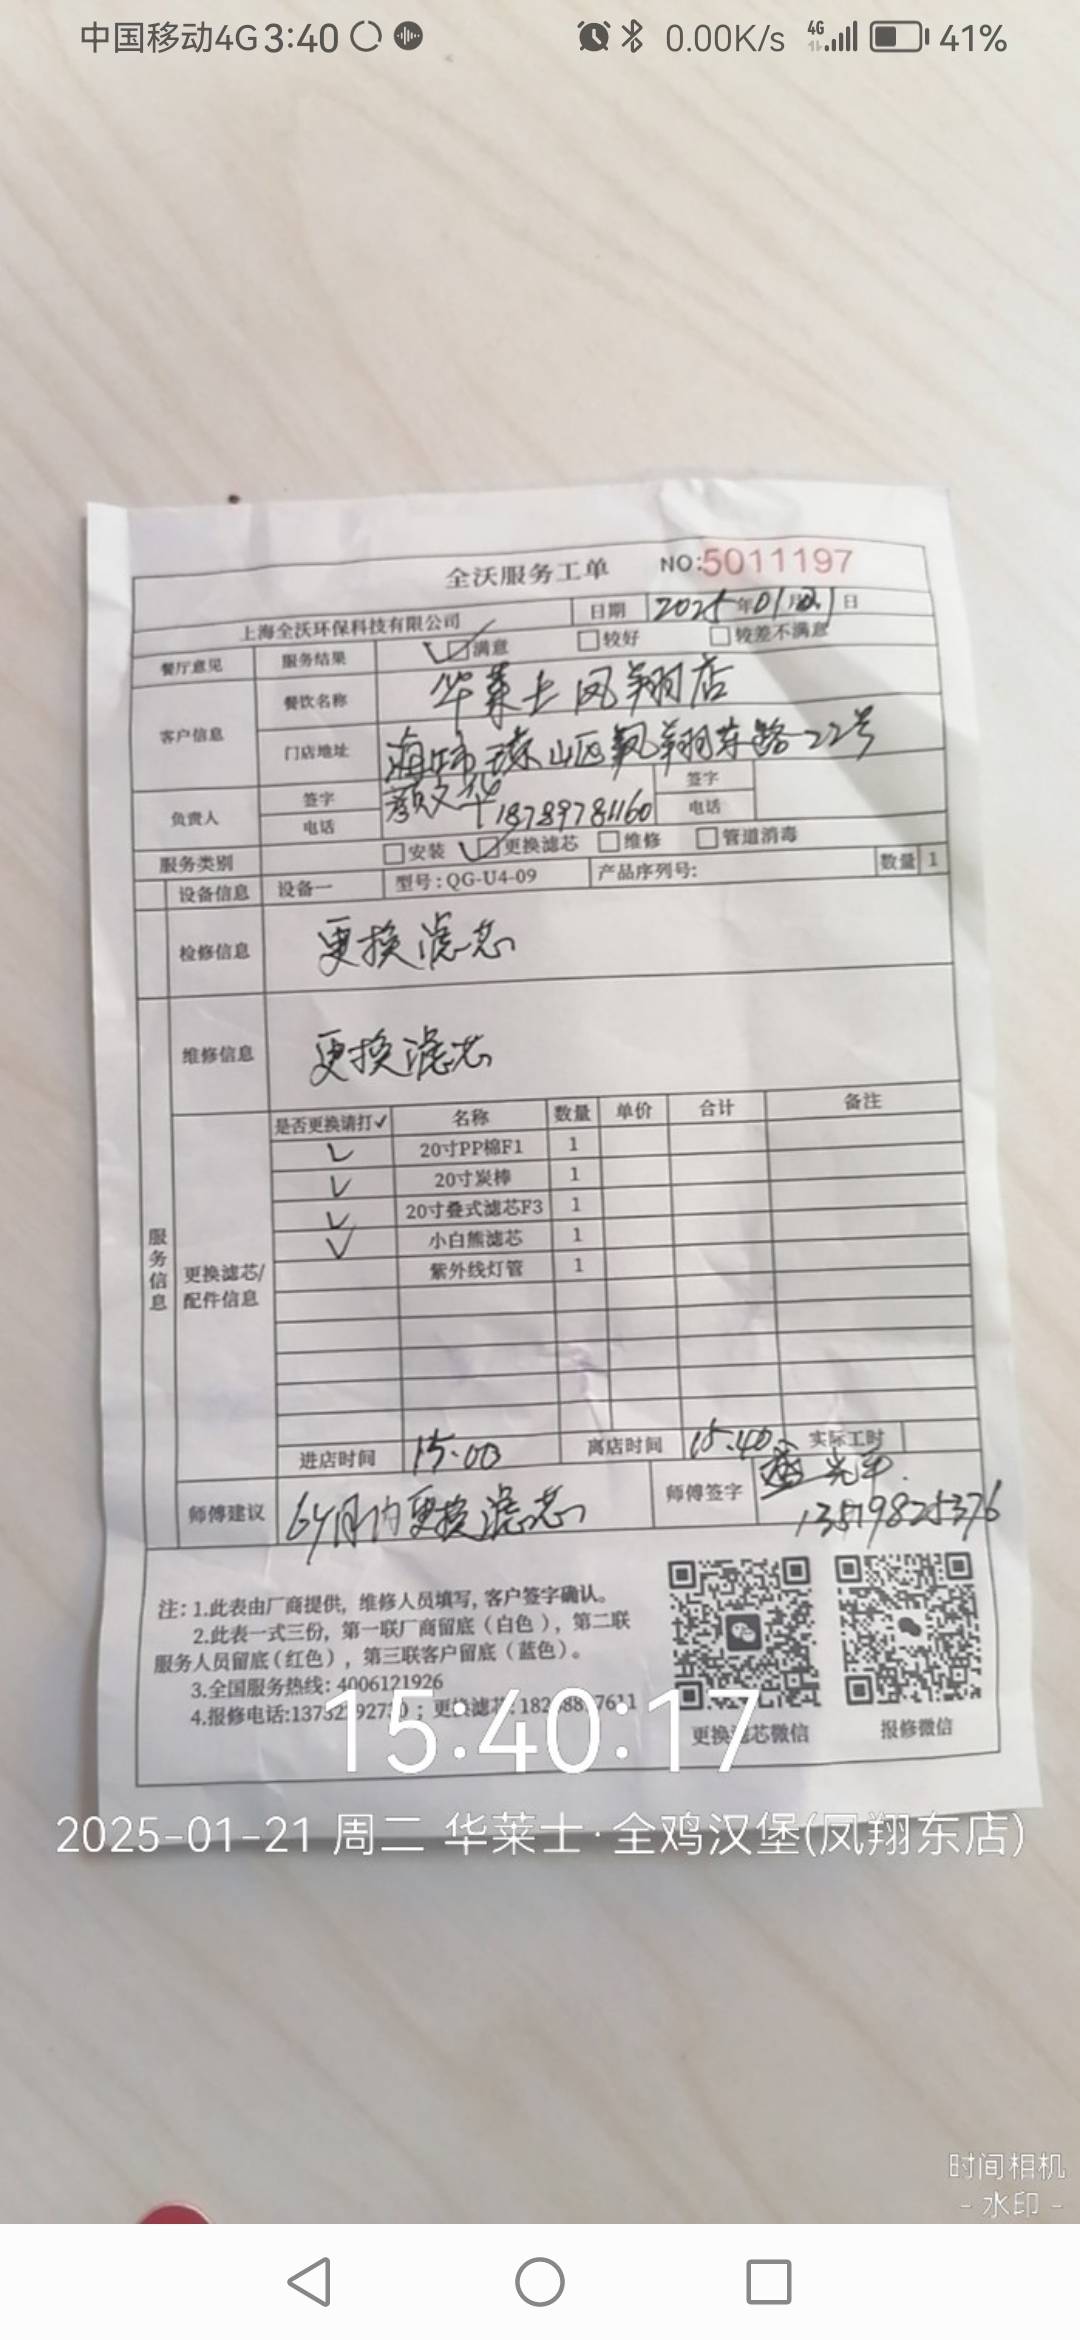 中国移动4G 3:40 0.00K/s 4G 41%
全沃服务工单 NO:5011197
上海全沃环保科技有限公司 日期 2025年01月21日
餐厅意见 服务结果 满意 较好 较差不满意
客户信息 餐饮名称 华莱士凤翔店
门店地址 海口市琼山区凤翔东路22号
负责人 签字 颜文华 签字
电话 18789781160 电话
服务类别 安装 更换滤芯 维修 管道消毒
设备信息 设备一 型号:QG-U4-09 产品序列号: 数量 1
检修信息 更换滤芯
维修信息 更换滤芯
服务信息
更换滤芯/
配件信息
是否更换请打✓ 名称 数量 单价 合计 备注
✓ 20寸PP棉F1 1
✓ 20寸炭棒 1
✓ 20寸叠式滤芯F3 1
✓ 小白熊滤芯 1
紫外线灯管 1
进店时间 15:00 离店时间 15:40 实际工时
师傅建议 6个月内更换滤芯 师傅签字
13519825376
注: 1.此表由厂商提供, 维修人员填写, 客户签字确认。
2.此表一式三份, 第一联厂商留底(白色), 第二联
服务人员留底(红色), 第三联客户留底(蓝色)。
3.全国服务热线: 4006121926
4.报修电话: ; 更换滤芯:
更换滤芯微信 报修微信
15:40:17
2025-01-21 周二 华莱士·全鸡汉堡(凤翔东店)
时间相机
- 水印 -